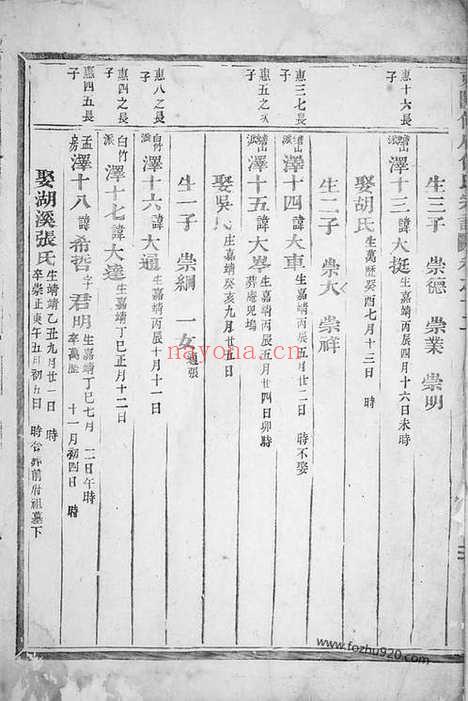 惠十六長子
生三子 崇德 崇業 崇明
澤十三 諱大挺 生嘉靖丙辰四月十六日未時
惠三七長子
娶胡氏 生萬歷癸酉七月十三日 時
生二子 崇大 崇祥
澤十四 諱大車 生嘉靖丙辰五月廿二日 時不娶
惠五之次子
澤十五 諱大舉 生嘉靖丙辰五月廿四日卯時 葬庵兒塢
娶吳氏 生嘉靖癸亥九月廿五日 時
生一子 崇綱 一女 適張
惠八之長子
澤十六 諱大通 生嘉靖丙辰十月十一日
惠四之長子
白竹派 澤十七 諱大達 生嘉靖丁巳正月十二日
惠四五長子
孟房 澤十八 諱希哲 字君明 生嘉靖丁巳七月 二日午時 卒萬歷 十一月初四日 時
娶湖溪張氏 生嘉靖乙丑九月廿一日 時 卒崇正庚午五月初五日 時 前府祖墓下
nayona.cn
www.fozhu920.com